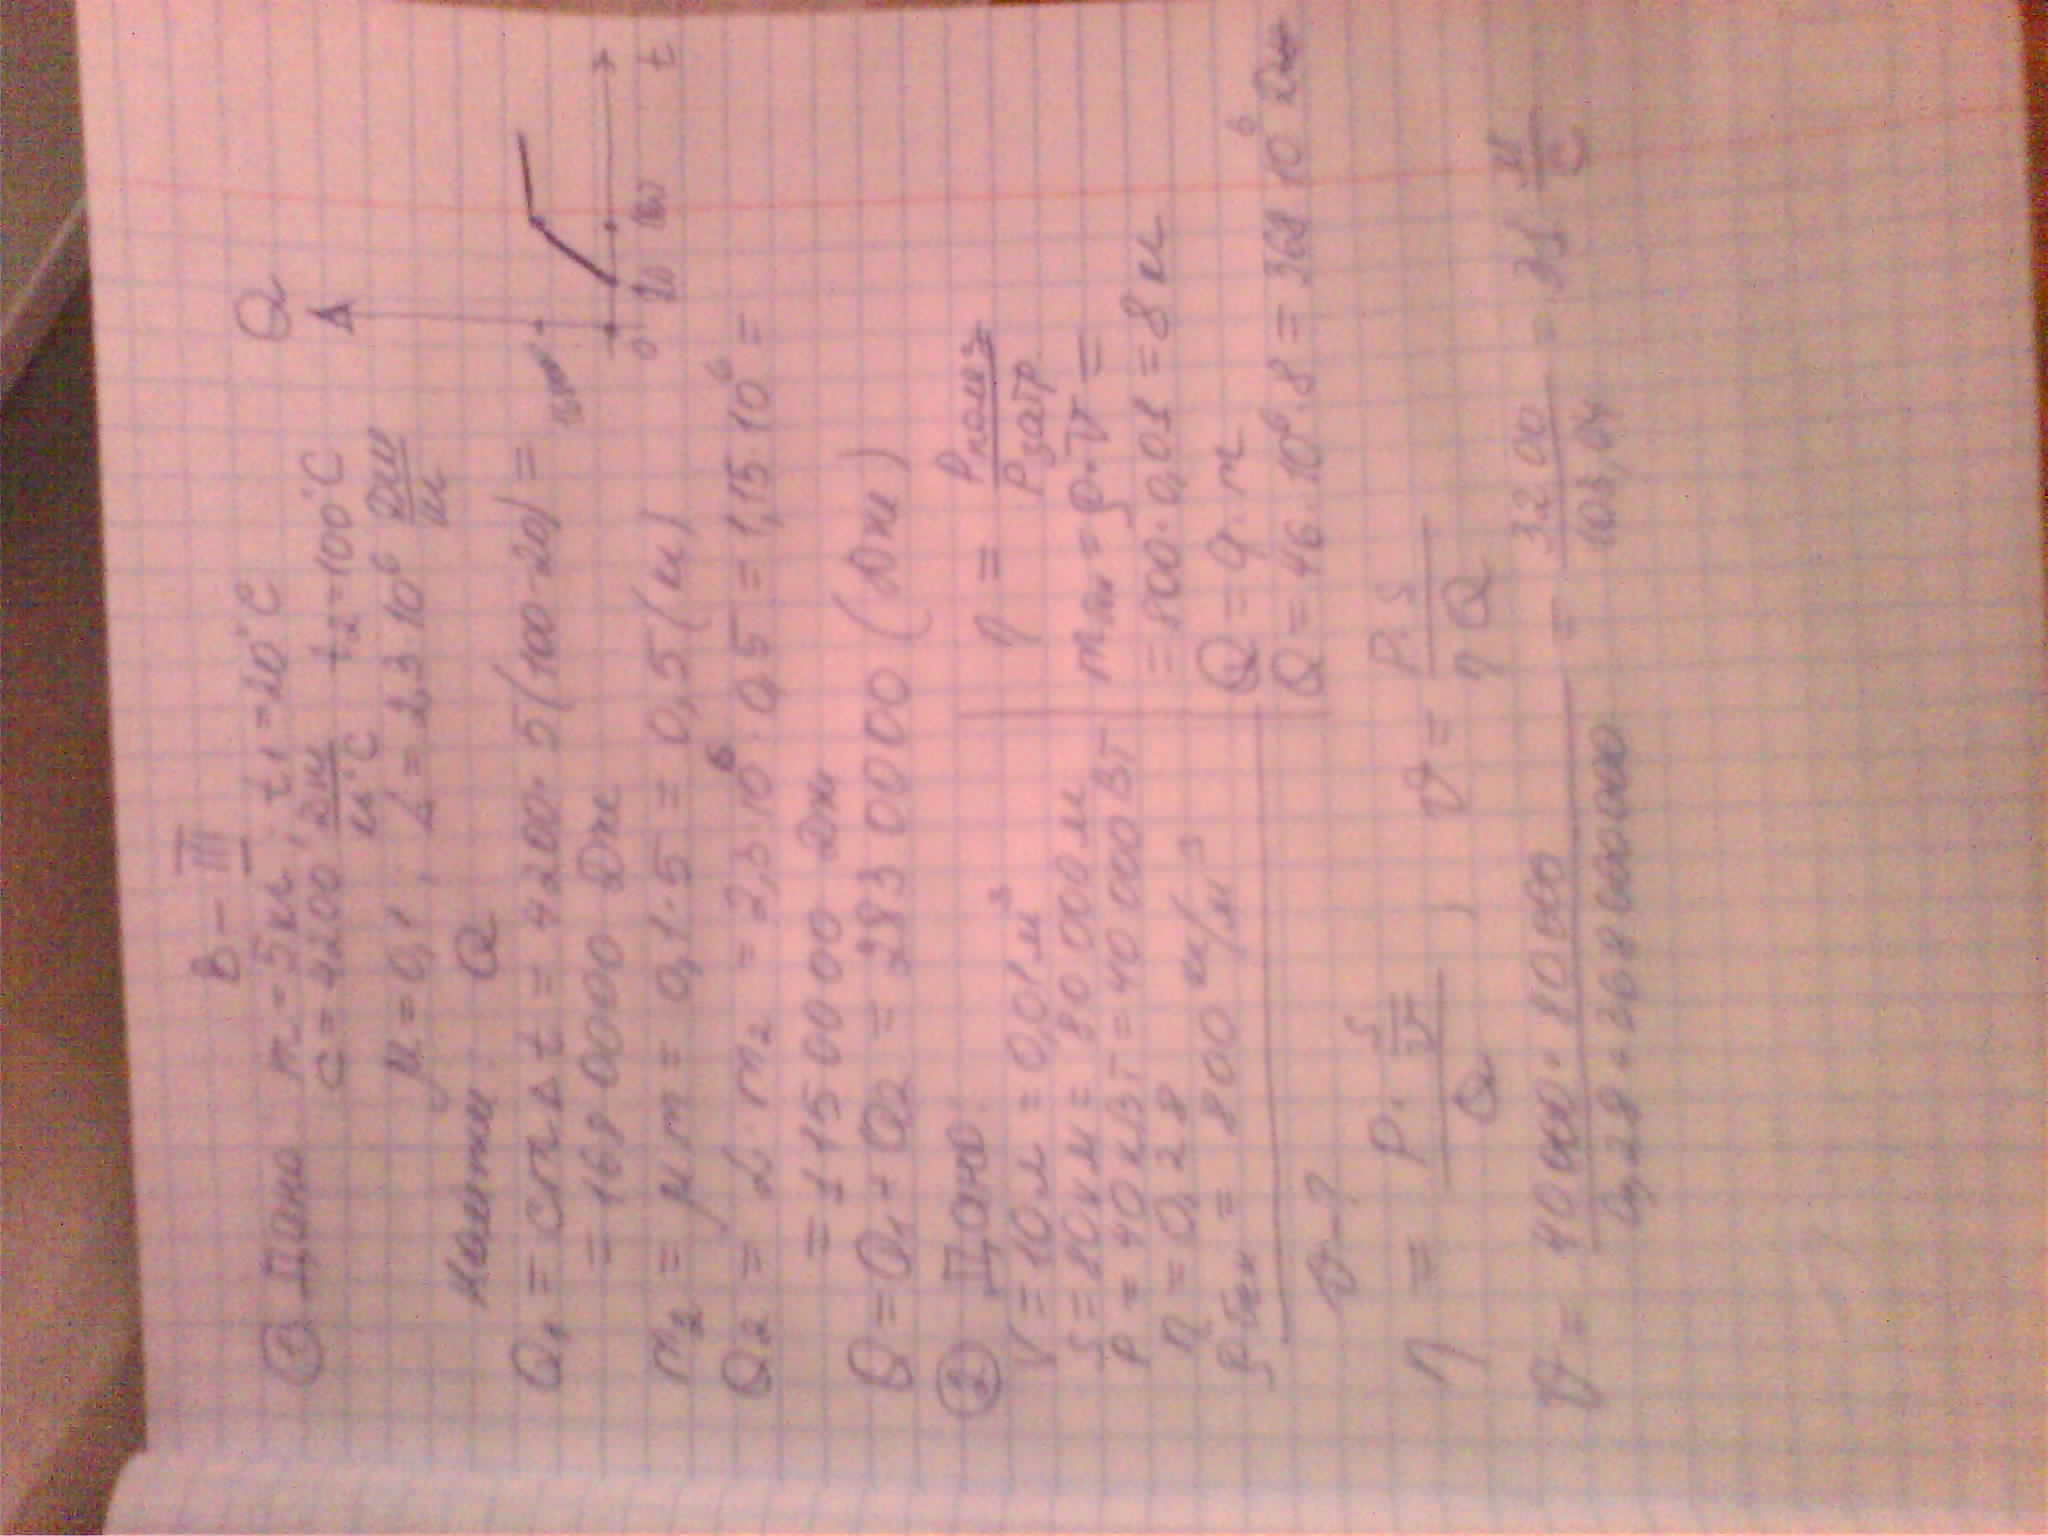 В – III
① Дано m = 5 кг, t₁ = 20°C
c = 4200 Дж/кг°C t₂ = 100°C
μ = 0,1, L = 2,3 10⁶ Дж/кг
Найти: Q
Q₁ = cm Δt = 4200 · 5 (100-20) =
= 1680000 Дж
m₂ = μ m = 0,1 · 5 = 0,5 (кг)
Q₂ = L · m₂ = 2,3 · 10⁶ · 0,5 = 1,15 10⁶ =
= 1150000 Дж
Q = Q₁ + Q₂ = 2830000 (Дж)
Q
0 20 100 t
② Дано:
V = 10 л = 0,01 м³
S = 80 км = 80 000 м
P = 40 кВт = 40 000 Вт
η = 0,28
ρбен = 800 кг/м³
v - ?
η = Pполез/Pзатр
mбен = ρ · V =
= 800 · 0,01 = 8 кг
Q = q · m
Q = 46 · 10⁶ · 8 = 368 10⁶ Дж
η = P · S/v / Q , v = P · S / η Q
v = 40 000 · 80000 / 0,28 · 368000000 = 3200 / 103,04 = 31 м/с